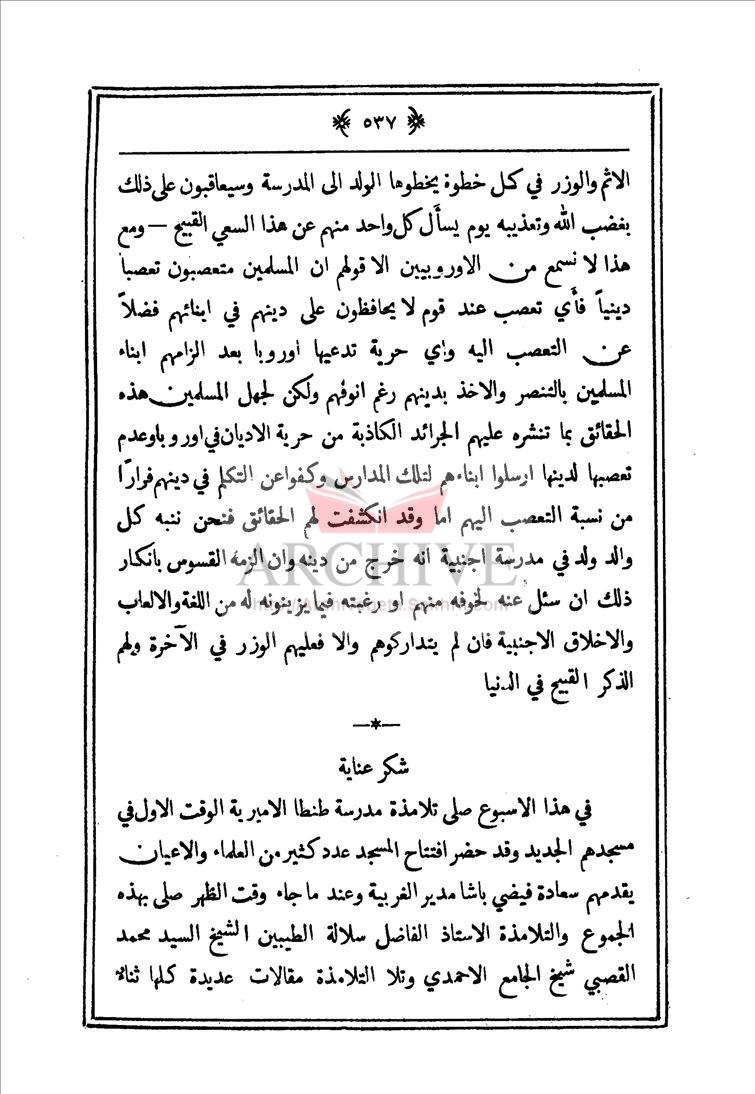 ﴿ ٥٣٧ ﴾
الاثم والوزر في كل خطوة يخطوها الولد الى المدرسة وسيعاقبون على ذلك
بغضب الله وتعذيبه يوم يسأل كل واحد منهم عن هذا السعي القبيح — ومع
هذا لا نسمع من الاوروبيين الا قولهم ان المسلمين متعصبون تعصبا
دينياً فأي تعصب عند قوم لا يحافظون على دينهم في ابنائهم فضلاً
عن التعصب اليه واي حرية تدعيها اوروبا بعد الزامهم ابناء
المسلمين بالتنصر والاخذ بدينهم رغم انوفهم ولكن لجهل المسلمين هذه
الحقائق بما تنشره عليهم الجرائد الكاذبة من حرية الاديان في اوروبا وعدم
تعصبها لدينها ارسلوا ابناءهم لتلك المدارس وكفوا عن التكلم في دينهم فرارًا
من نسبة التعصب اليهم اما وقد انكشفت لهم الحقائق فنحن ننبه كل
والد ولد في مدرسة اجنبية انه خرج من دينه وان الزمه القسوس بانكار
ذلك ان سئل عنه لخوفه منهم او رغبته فيما يزينونه له من اللغة والالعاب
والاخلاق الاجنبية فان لم يتداركوهم والا فعليهم الوزر في الآخرة ولهم
الذكر القبيح في الدنيا
—*—
شكر عناية
في هذا الاسبوع صلى تلامذة مدرسة طنطا الاميرية الوقت الاول في
مسجدهم الجديد وقد حضر افتتاح المسجد عدد كثير من العلماء والاعيان
يقدمهم سعادة فيضي باشا مدير الغربية وعند ما جاء وقت الظهر صلى بهذه
الجموع والتلامذة الاستاذ الفاضل سلالة الطيبين الشيخ السيد محمد
القصبي شيخ الجامع الاحمدي وتلا التلامذة مقالات عديدة كلها ثناء
ARCHIVE